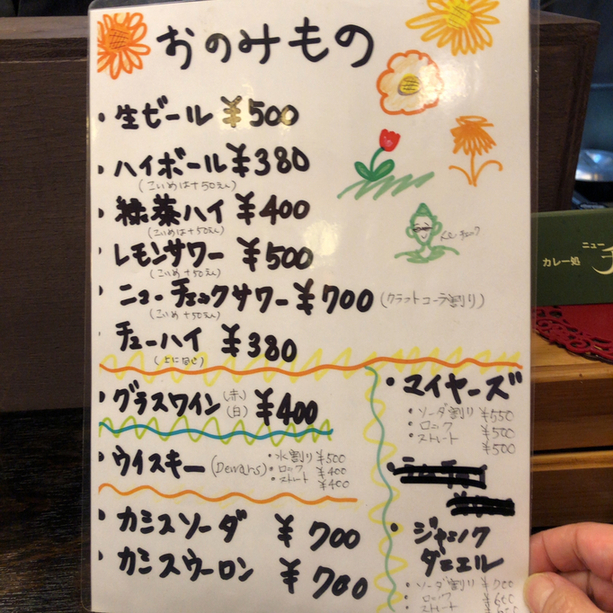 おのみもの
・生ビール ¥500
・ハイボール ¥380
(こいめは+50えん)
・緑茶ハイ ¥400
(こいめは+50えん)
・レモンサワー ¥500
(こいめ+50えん)
・ニューチェックサワー ¥700 (クラフトコーラ割り)
(こいめ+50えん)
・チューハイ ¥380
・グラスワイン (赤) (白) ¥400
・ウイスキー (Dewars)
・水割り ¥500
・ロック ¥400
・ストレート ¥400
・カシスソーダ ¥700
・カシスウーロン ¥700
・マイヤーズ
・ソーダ割り ¥550
・ロック ¥500
・ストレート ¥500
・ジャックダニエル
・ソーダ割り
・ロック
・ストレート
ニュー
カレー処